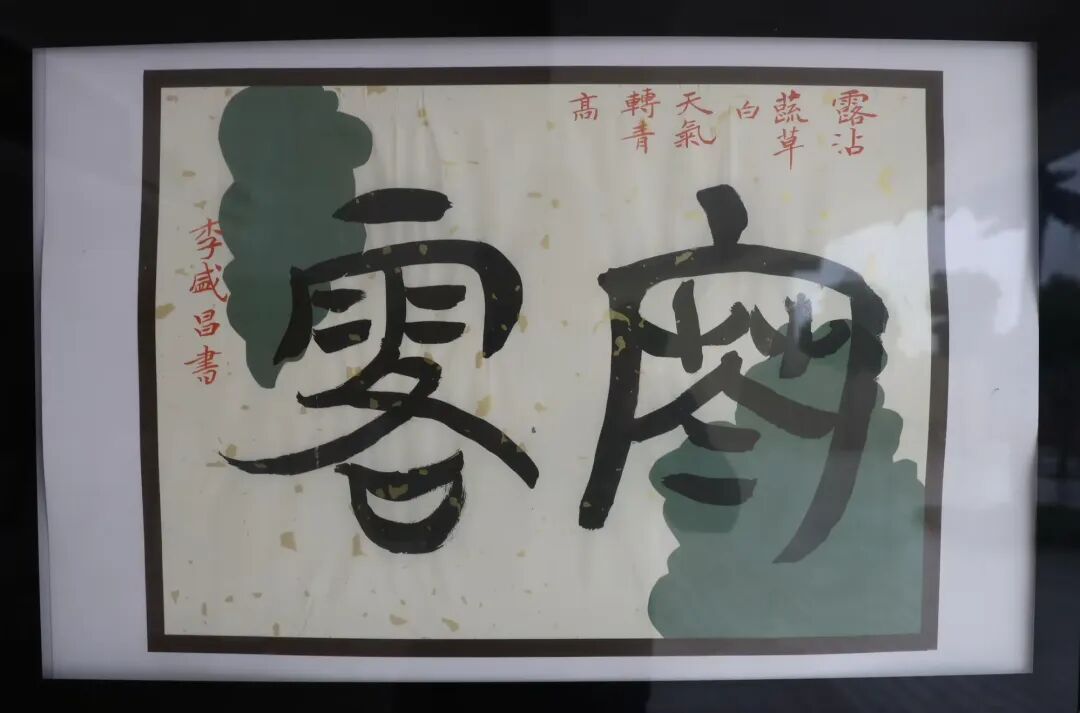 寒露
露沾
蔬草
白
天氣
轉青
高
李盛昌書